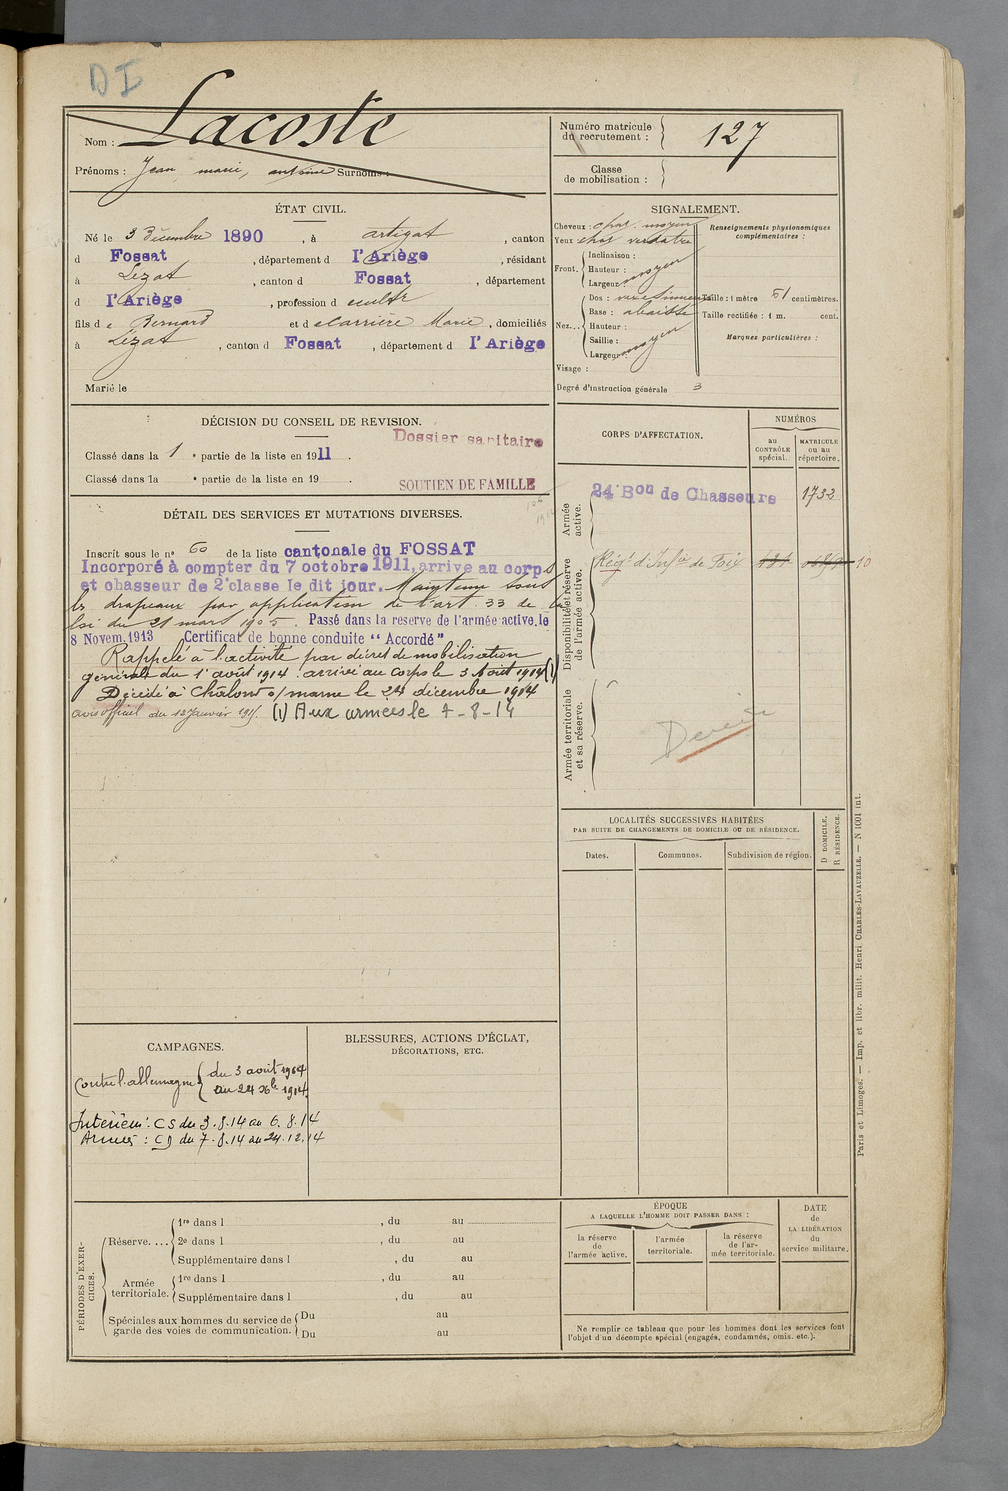 DI
Nom : Lacoste
Prénoms : Jean marie, antoine Surnoms :
Numéro matricule du recrutement : 127
Classe de mobilisation :
ÉTAT CIVIL.
Né le 3 Décembre 1890, à artigat, canton
d Fossat, département d l'Ariège, résidant
à Lézat, canton d Fossat, département
d l'Ariège, profession d cultr
fils de Bernard et de Carrière Marie, domiciliés
à Lézat, canton d Fossat, département d l'Ariège
Marié le
SIGNALEMENT.
Cheveux : chat. moyen
Yeux chat verdatre
Front. Inclinaison :
Hauteur : moyen
Largeur
Nez... Dos :
Base : abaissé
Hauteur :
Saillie : moyen
Largeur :
Visage :
Degré d'instruction générale 3
Renseignements physionomiques complémentaires :
Taille : 1 mètre 61 centimètres.
Taille rectifiée : 1 m. cent.
Marques particulières :
DÉCISION DU CONSEIL DE REVISION.
Dossier sanitaire
Classé dans la 1 e partie de la liste en 1911.
Classé dans la e partie de la liste en 19 .
SOUTIEN DE FAMILLE
DÉTAIL DES SERVICES ET MUTATIONS DIVERSES.
Inscrit sous le n° 60 de la liste cantonale du FOSSAT
Incorporé à compter du 7 octobre 1911, arrive au corps
et chasseur de 2e classe le dit jour. Maintenu sous
les drapeaux par application de l'art. 33 de la
loi du 21 mars 1905. Passé dans la reserve de l'armée active, le
8 Novem. 1913 Certificat de bonne conduite "Accordé"
Rappelé à l'activité par décret de mobilisation
générale du 1er août 1914. arrivé au corps le 3 Août 1914 (1)
Décédé à Châlons s/marne le 24 décembre 1914
avis officiel du 12 Janvier 1915. (1) Aux armées le 7-8-14
CORPS D'AFFECTATION.
NUMÉROS
au CONTRÔLE spécial.
MATRICULE ou au répertoire.
Armée active.
24e Bon de Chasseurs 1732
Disponibilité et réserve de l'armée active.
Régt d'Infie de Foix 10
Armée territoriale et sa réserve.
LOCALITÉS SUCCESSIVES HABITÉES
PAR SUITE DE CHANGEMENTS DE DOMICILE OU DE RÉSIDENCE.
Dates.
Communes.
Subdivision de région.
D DOMICILE.
R RÉSIDENCE.
CAMPAGNES.
Contre l'allemagne du 3 août 1914
au 24 Xbre 1914
Intérieur : CS du 3.8.14 au 6.8.14
Armées : CD du 7.8.14 au 24.12.14
BLESSURES, ACTIONS D'ÉCLAT,
DÉCORATIONS, ETC.
PÉRIODES D'EXERCICES.
Réserve....
1re dans l , du au
2e dans l , du au
Supplémentaire dans l , du au
Armée territoriale.
1re dans l , du au
Supplémentaire dans l , du au
Spéciales aux hommes du service de garde des voies de communication.
Du au
Du au
ÉPOQUE
A LAQUELLE L'HOMME DOIT PASSER DANS :
la réserve de l'armée active.
l'armée territoriale.
la réserve de l'armée territoriale.
DATE de LA LIBÉRATION du service militaire.
Ne remplir ce tableau que pour les hommes dont les services font
l'objet d'un décompte spécial (engagés, condamnés, omis, etc.).
Paris et Limoges. — Imp. et libr. milit. Henri CHARLES-LAVAUZELLE. — N 1001 int.